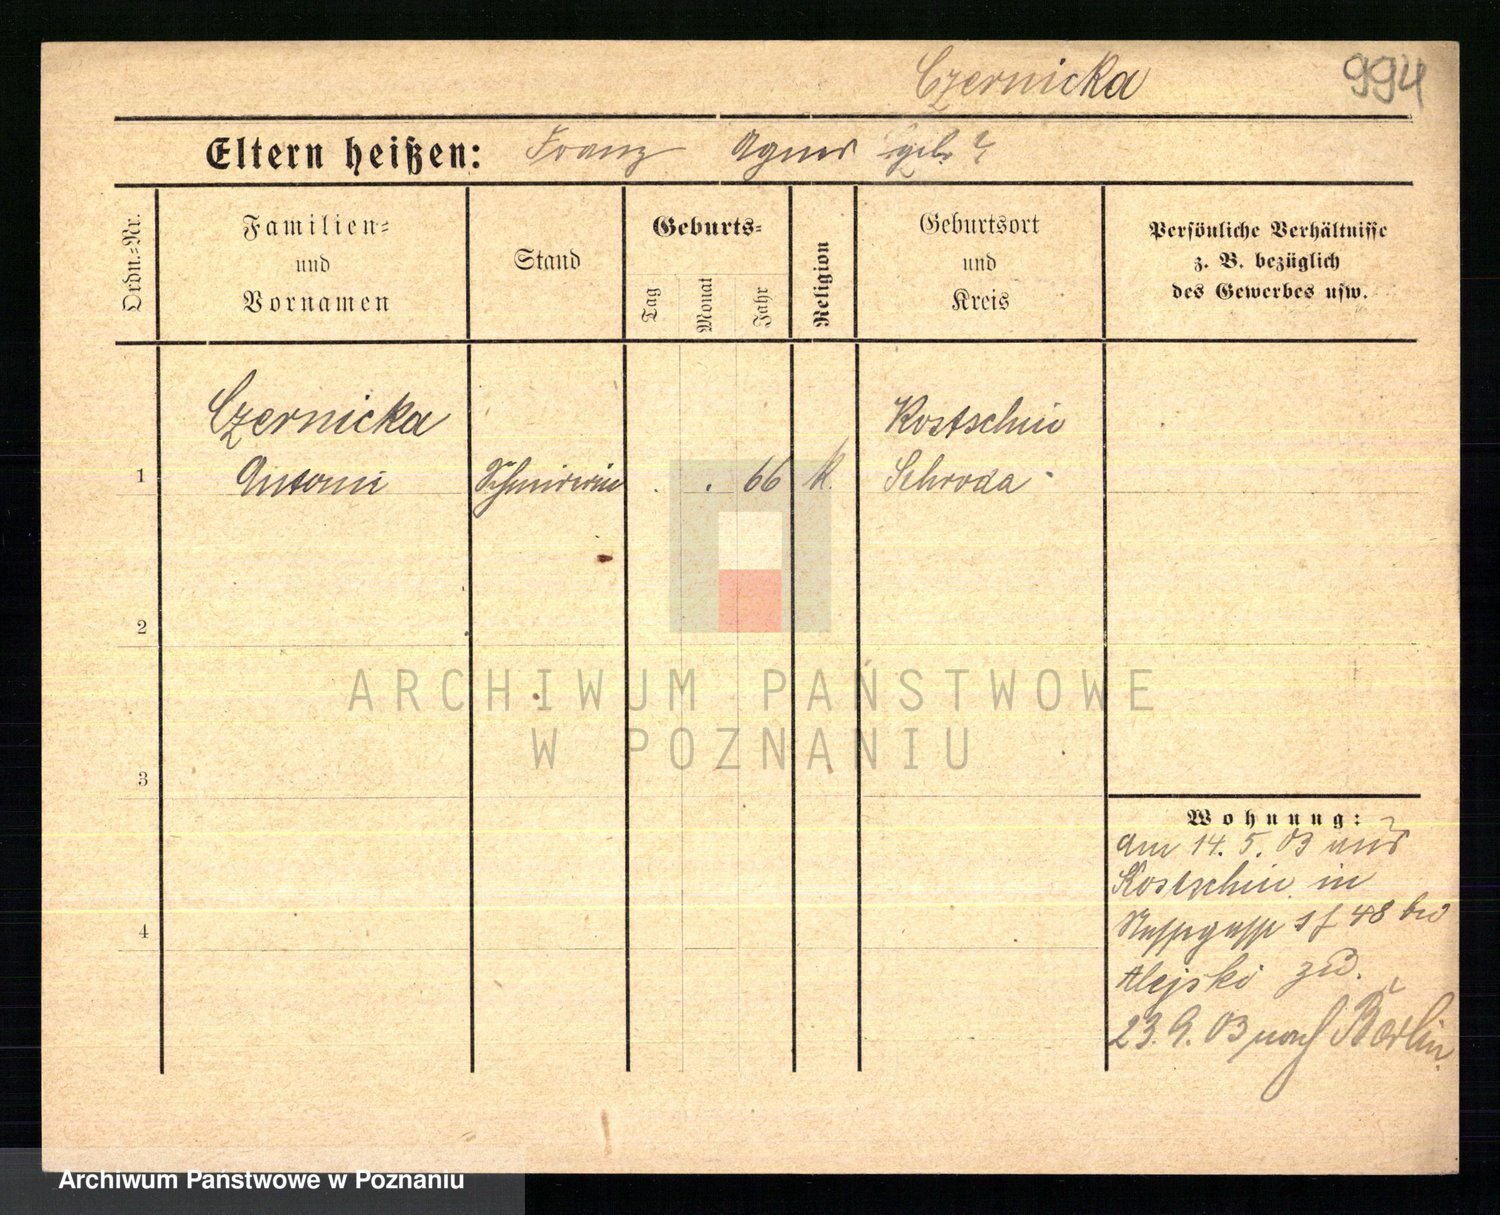 Czernicka 994
Eltern heißen: Franz Agnes geb. ?
Ordn.-Nr.
Familien-
und
Vornamen
Stand
Geburts-
Tag
Monat
Jahr
Religion
Geburtsort
und
Kreis
Persönliche Verhältnisse
z. B. bezüglich
des Gewerbes usw.
Czernicka Kostschin
1 Antonie 66 k. Schroda
2
ARCHIWUM PAŃSTWOWE
W POZNANIU
3
Wohnung:
am 14. 5. 03 aus
Kostschin in
48 bei
Alejski zu.
4
23. 9. 03 nach Berlin
Archiwum Państwowe w Poznaniu